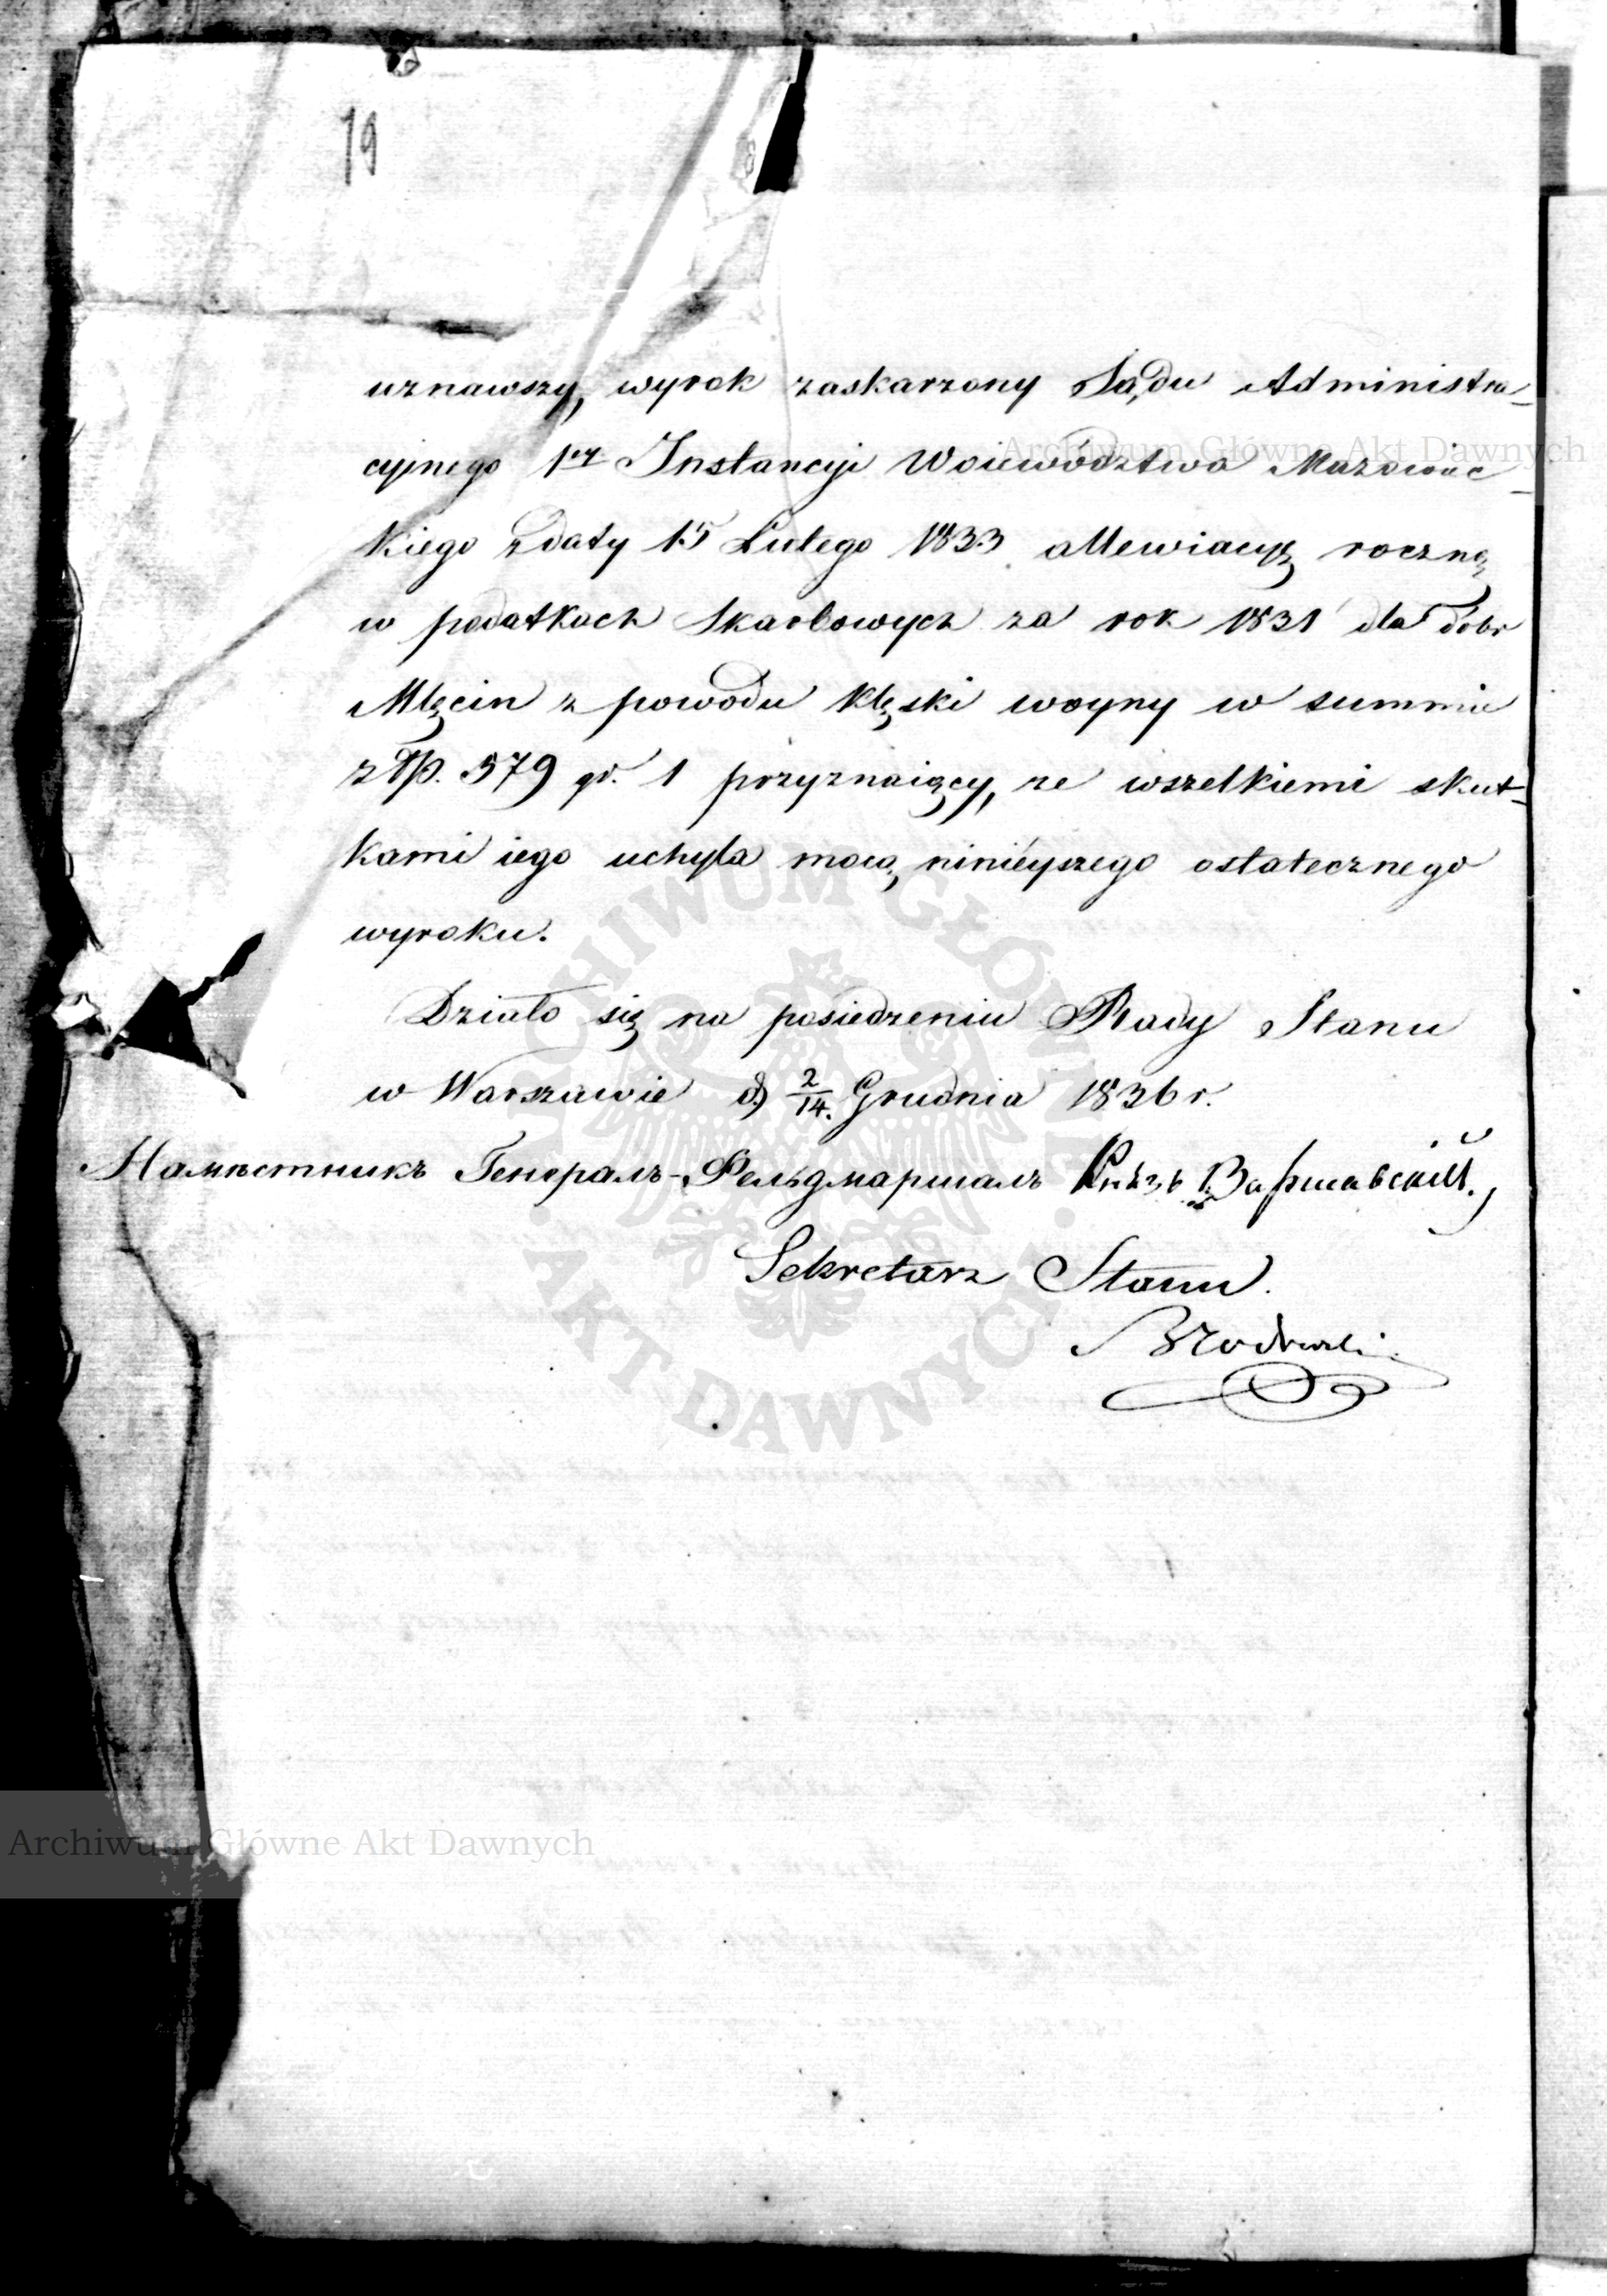 19
uznawszy, wyrok zaskarzony Sądu Administra-
cyjnego 1ey Instancyi Woiewództwa Mazowiec-
kiego z daty 15 Lutego 1833 allewiacyę roczną
w podatkach Skarbowych za rok 1831 dla dobr
Mlęcin z powodu klęski woyny w summie
złp. 579 gr. 1 przyznaiący, ze wszelkiemi skut-
kami iego uchyla mocą ninieyszego ostatecznego
wyroku.
Działo się na posiedzeniu Rady Stanu
w Warszawie d. 2/14. Grudnia 1836 r.
Намѣстникъ Генералъ-Фельдмаршалъ Князь Варшавскій.
Sekretarz Stanu.
Archiwum Główne Akt Dawnych
ARCHIWUM GŁÓWNE
AKT DAWNYCH
Archiwum Główne Akt Dawnych